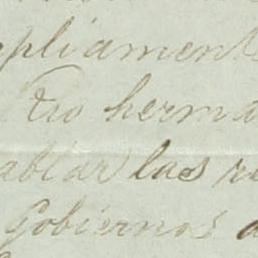 mpliamente
Trio herma
ablar las re
Gobiernos a